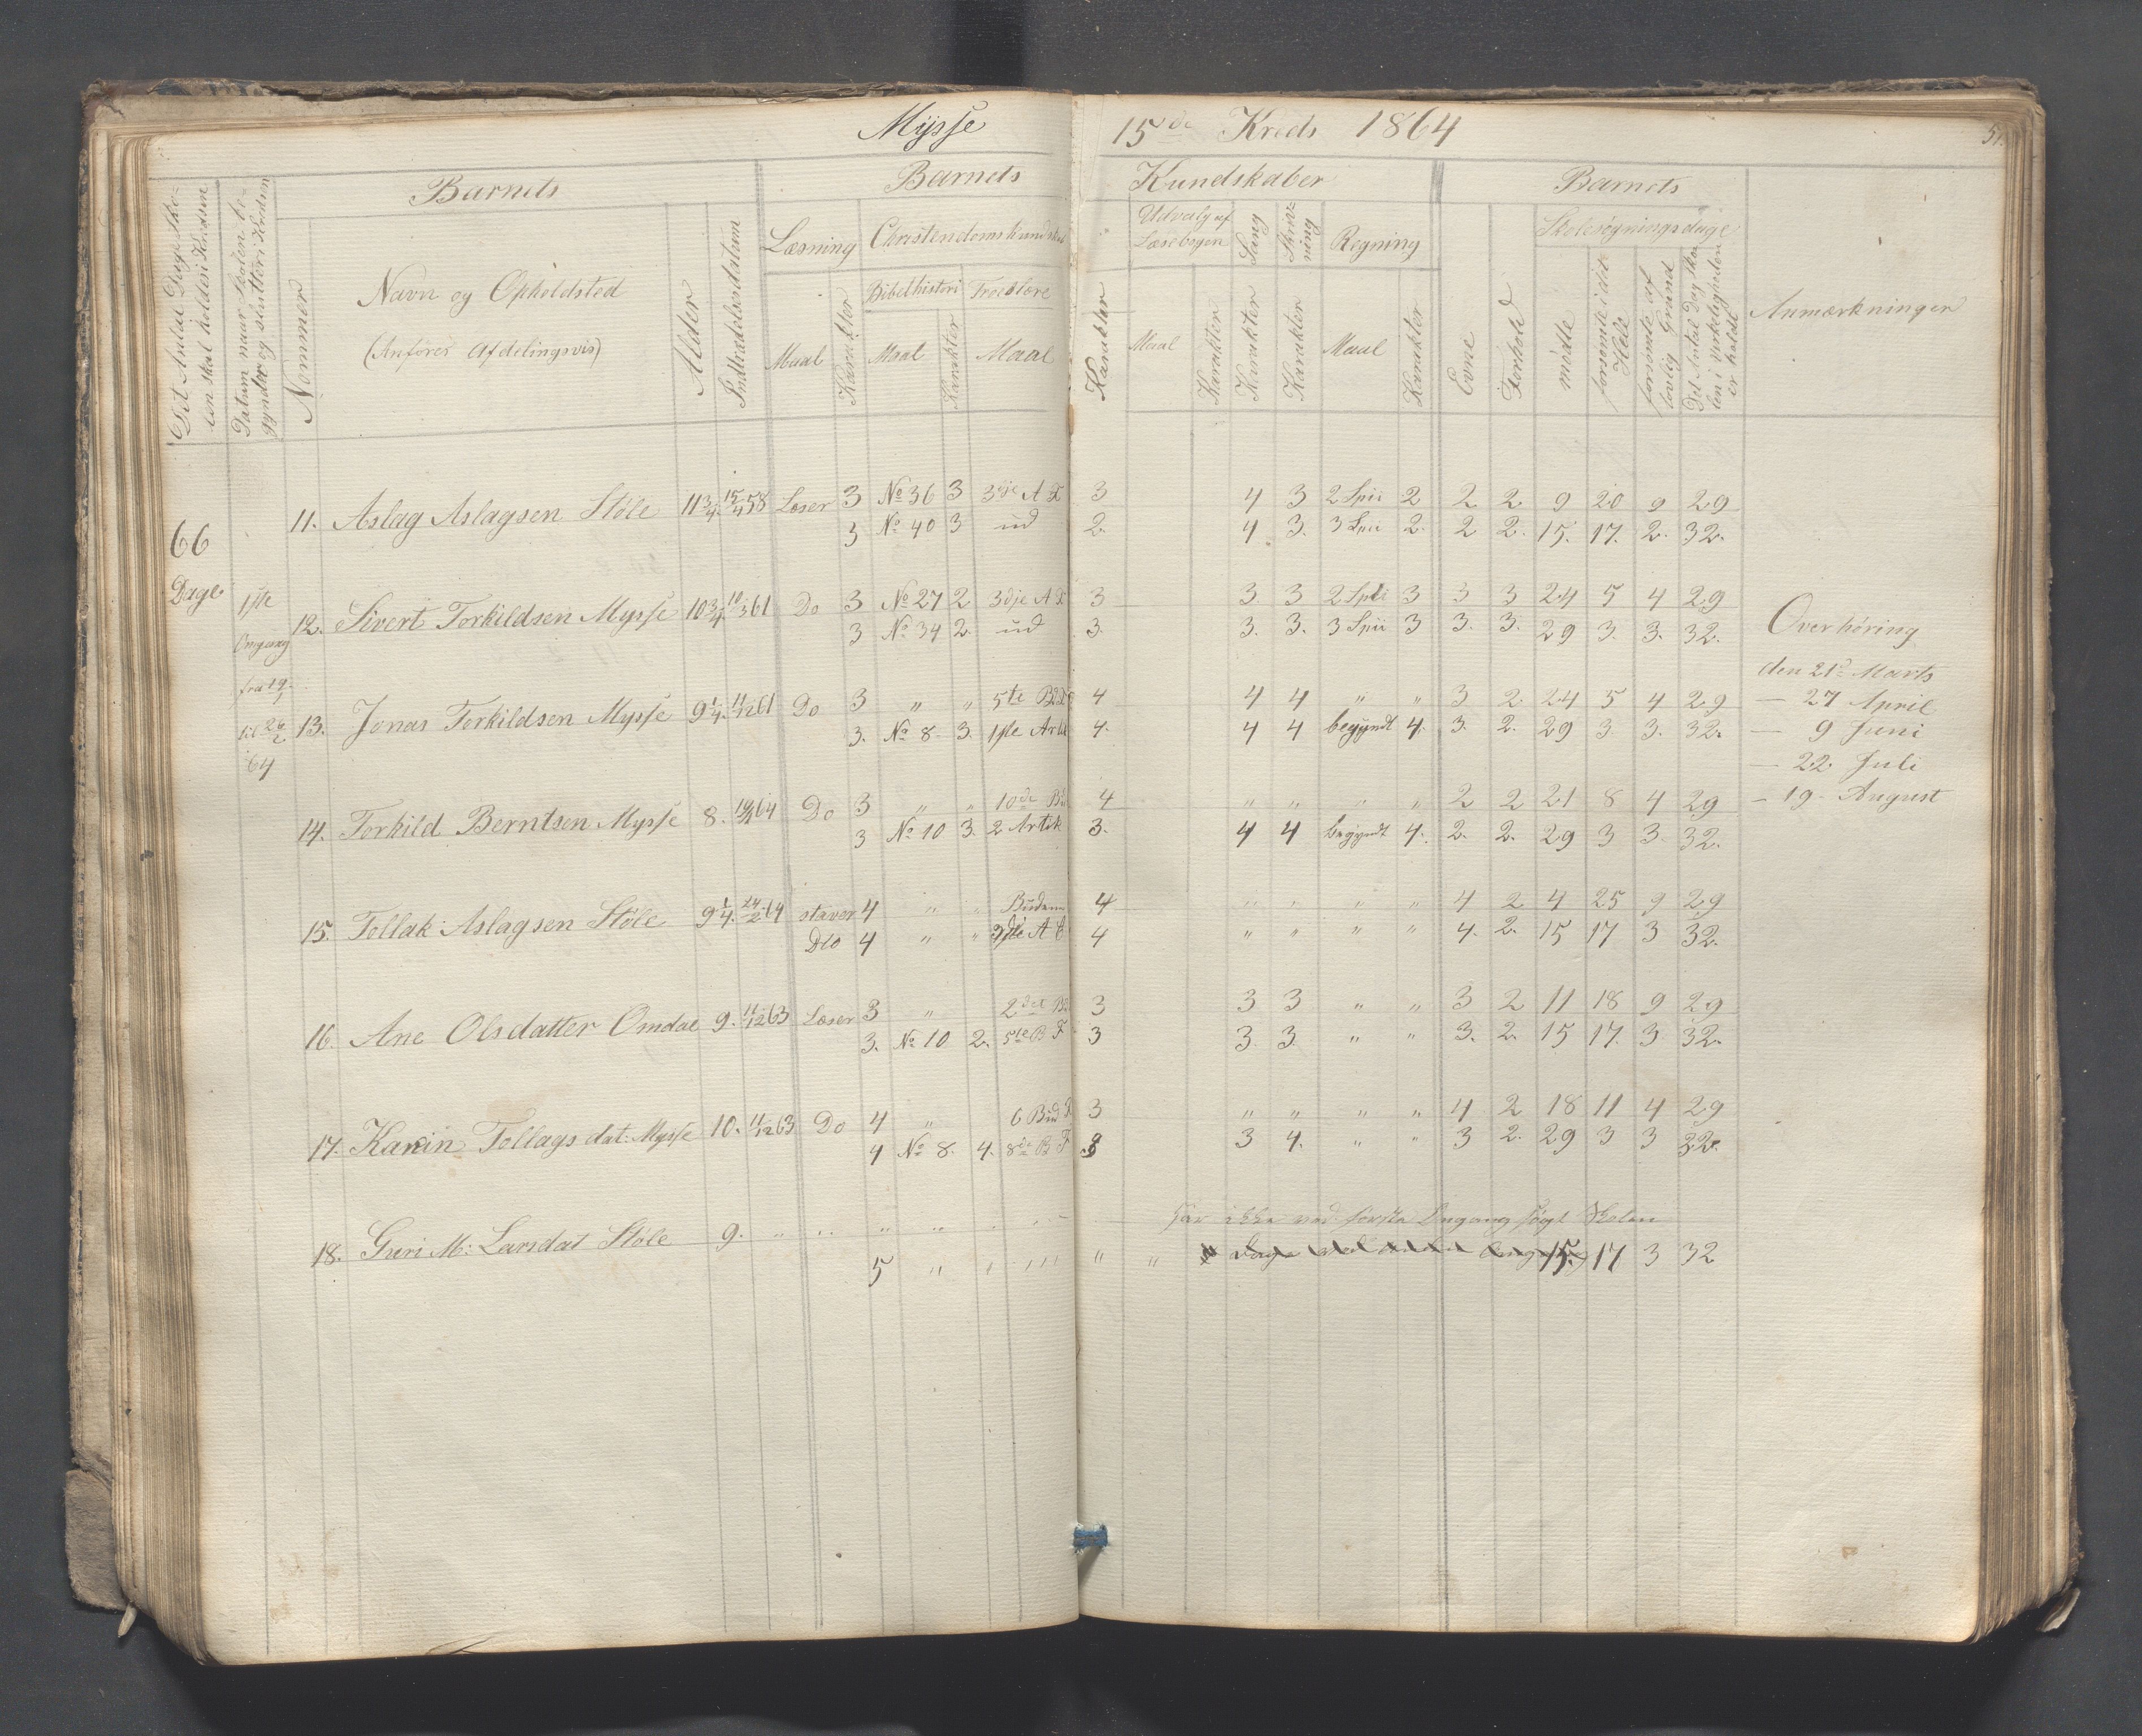 Mysse 15de Kreds 1864
Barnets Barnets Kundskaber Barnets
Det Antal Dage Skolen skal holdes i Kredsen
Datum naar Skolen begynder og slutter i Kredsen
Nommer
Navn og Opholdsted
(Anføres Afdelingsvis)
Alder
Indtrædelsesdatum
Læsning Christendomskundskab
Bibelhistori Troeslære
Maal Karakter Maal Karakter Maal Karakter
Udvalg af Læsebogen Sang Skrivning Regning
Maal Karakter Karakter Karakter Maal Karakter
Evne Forhold
Skolesøgningsdage
mødte forsømte i det Hele forsømte af lovlig Grund Det Antal Dage Skolen i virkeligheden er holdt
Anmærkninger
66 Dage
1ste Omgang fra 19/1 til 26/2 64
11. Aslag Aslagsen Støle 11 3/4 15/4 58 Læser 3 No 36 3 3die A F 3 4 3 2 Spii 2 2 2 9 20 9 29
3 No 40 3 ud 2. 4 3. 3 Spii 2. 2 2. 15. 17. 2. 32.
12. Sivert Torkildsen Mysse 10 3/4 10/3 61 Do 3 No 27 2 3dje A F 3 3. 3 2 Spii 3 3 3 24 5 4 29
3 No 34 2. ud 3. 3. 3. 3 Spii 3 3. 3. 29 3. 3. 32.
13. Jonas Torkildsen Mysse 9 1/4 11/12 61 Do 3 " " 5te B F 4 4 4 " " 3 2 24 5 4 29
3. No 8 3. 1ste Artk 4. 4 4 begyndt 4. 3. 2. 29 3. 3. 32.
14. Torkild Berntsen Mysse 8. 19/1 64 Do 3 " " 10de Bd 4 " " " " 2 2 21 8 4 29
3 No 10 3. 2 Artik 3. 4 4 begyndt 4. 2. 2. 29 3 3. 32.
15. Tollak Aslagsen Støle 9 1/4 24/2 64 staver 4 " " Budene 4 " " " " 4 2 4 25 9 29
Dto 4 " " A 4 " " " " 4. 2. 15 17 3 32.
16. Ane Olsdatter Omdal 9. 11/12 63 Læser 3 " 2det Bd 3 3 3 " " 3 2 11 18 9 29
3. No 10 2. 5te B F 3 3. 3. " " 3. 2. 15 17. 3. 32.
17. Karin Tollags dat: Mysse 10. 11/12 63 Do 4 " 6 Bud F 3 " " " " 4 2 18 11 4 29
4 No 8. 4. 8de B F 3 3 4. " " 3 2. 29 3 3 32.
18. Guri M: Larsdat Støle 9. " " " " har ikke ved første Omgang søgt Skolen
5 " " " " " 15. 17 3 32
Overhøring
den 21de Marts
— 27 April
— 9 Juni
— 22 Juli
— 19 August